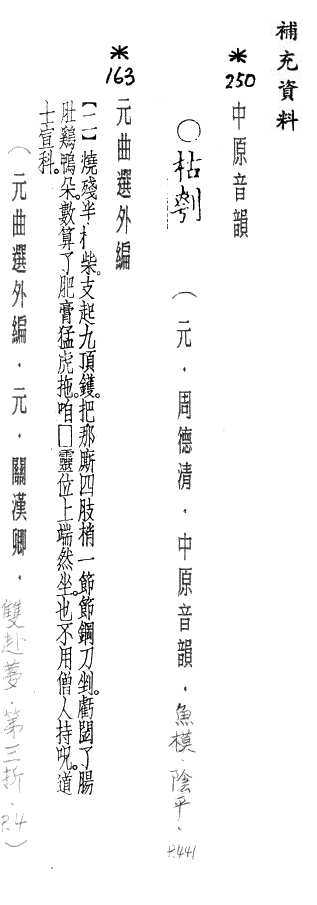 補充資料
*250 中原音韻
○枯刳
(元．周德清．中原音韻．魚模．陰平．P.441
*163 元曲選外編
【二】燒殘半柴。支起九頂鑊。把那廝四肢梢一節節鋼刀剉。虧圖了腸
肚鷄鴨朵。數算了肥膏猛虎拖。咱□靈位上端然坐。也不用僧人持呪。道
士宣科。
(元曲選外編．元．關漢卿．雙赴夢．第三折．P.4)